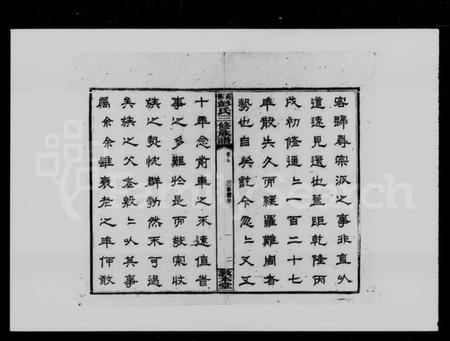 客歸尋宗派之事非直以
道遠見遺也蓋距乾隆丙
戌初修適上一百二十七
年散失久而羅難周者
勢也自癸訖今忽上又五
彭氏三修族譜
一 二
敦本堂
十年念前車之不遠值省
事之多難於是而宗收
族之忱群勃然不可遏
矣族之父老數上以其事
屬余余雖衰老之年何敢